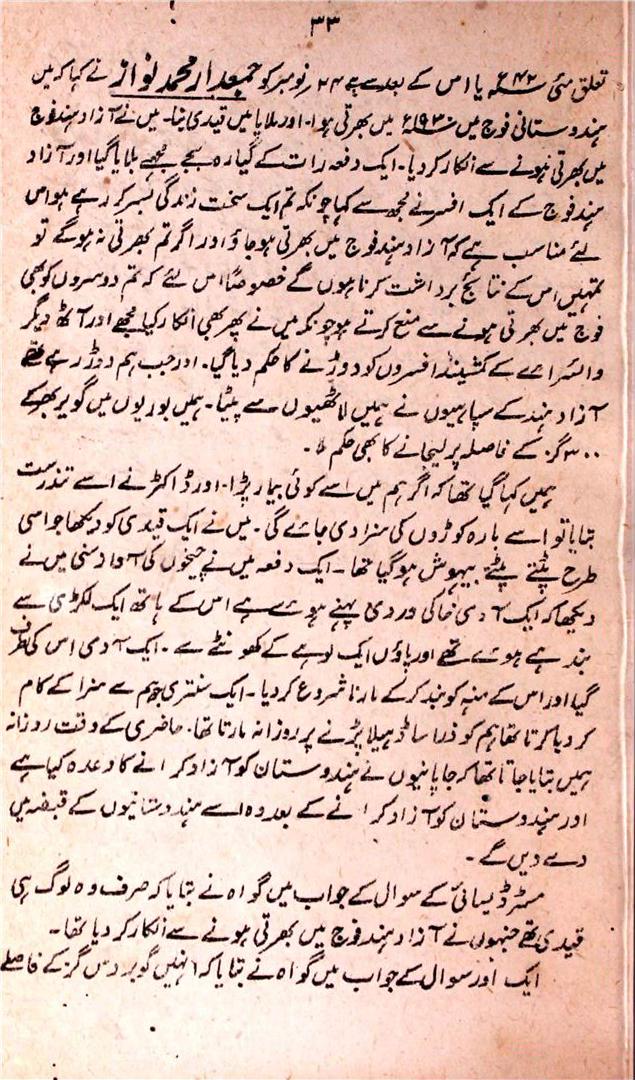 ۳۳
تعلق مئی ۴۲ء یا اس کے بعد سے ہے ۲۴ نومبر کو جمعدار محمد نواز نے کہا کہ میں
ہندوستانی فوج میں ۱۹۳۰ء میں بھرتی ہوا۔ اور ملایا میں قیدی بنا۔ میں نے آزاد ہند فوج
میں بھرتی ہونے سے انکار کر دیا۔ ایک دفعہ رات کے گیارہ بجے مجھے بلایا گیا اور آزاد
ہند فوج کے ایک افسر نے مجھ سے کہا چونکہ تم ایک سخت زندگی بسر کر رہے ہو اس
لئے مناسب ہے کہ آزاد ہند فوج میں بھرتی ہو جاؤ اور اگر تم بھرتی نہ ہو گے تو
تمہیں اس کے نتائج برداشت کرنا ہوں گے خصوصاً اس لئے کہ تم دوسروں کو بھی
فوج میں بھرتی ہونے سے منع کرتے ہو چونکہ میں نے پھر بھی انکار کیا مجھے اور آٹھ دیگر
وائسرائے کے کمشینڈ افسروں کو دوڑنے کا حکم دیا گیا۔ اور جب ہم دوڑ رہے تھے
آزاد ہند کے سپاہیوں نے ہمیں لاٹھیوں سے پیٹا۔ ہمیں بوریوں میں گوبر بھر کے
۳۰۰ گز کے فاصلہ پر لیجانے کا بھی حکم
ہمیں کہا گیا تھا کہ اگر ہم میں سے کوئی بیمار پڑا۔ اور ڈاکٹر نے اسے تندرست
بتایا تو اسے بارہ کوڑوں کی سزا دی جائے گی۔ میں نے ایک قیدی کو دیکھا جو اسی
طرح پٹتے پٹتے بیہوش ہو گیا تھا۔ ایک دفعہ میں نے چیخوں کی آواز سنی میں نے
دیکھا کہ ایک آدمی خاکی وردی پہنے ہوئے ہے اس کے ہاتھ ایک لکڑی سے
بندھے ہوئے تھے اور پاؤں ایک لوہے کے کھونٹے سے۔ ایک آدمی اس کی طرف
گیا اور اس کے منہ کو بند کر کے مارنا شروع کر دیا۔ ایک سنتری ہم سے سزا کے کام
کروایا کرتا تھا ہم کو ذرا سا ڈھیلا پڑنے پر روزانہ مارتا تھا۔ حاضری کے وقت روزانہ
ہمیں بتایا جاتا تھا کہ جاپانیوں نے ہندوستان کو آزاد کرانے کا وعدہ کیا ہے
اور ہندوستان کو آزاد کرانے کے بعد وہ اسے ہندوستانیوں کے قبضہ میں
دے دیں گے۔
مسٹر ڈیسائی کے سوال کے جواب میں گواہ نے بتایا کہ صرف وہ لوگ ہی
قیدی تھے جنہوں نے آزاد ہند فوج میں بھرتی ہونے سے انکار کر دیا تھا۔
ایک اور سوال کے جواب میں گواہ نے بتایا کہ انہیں گوبر دس گز کے فاصلے